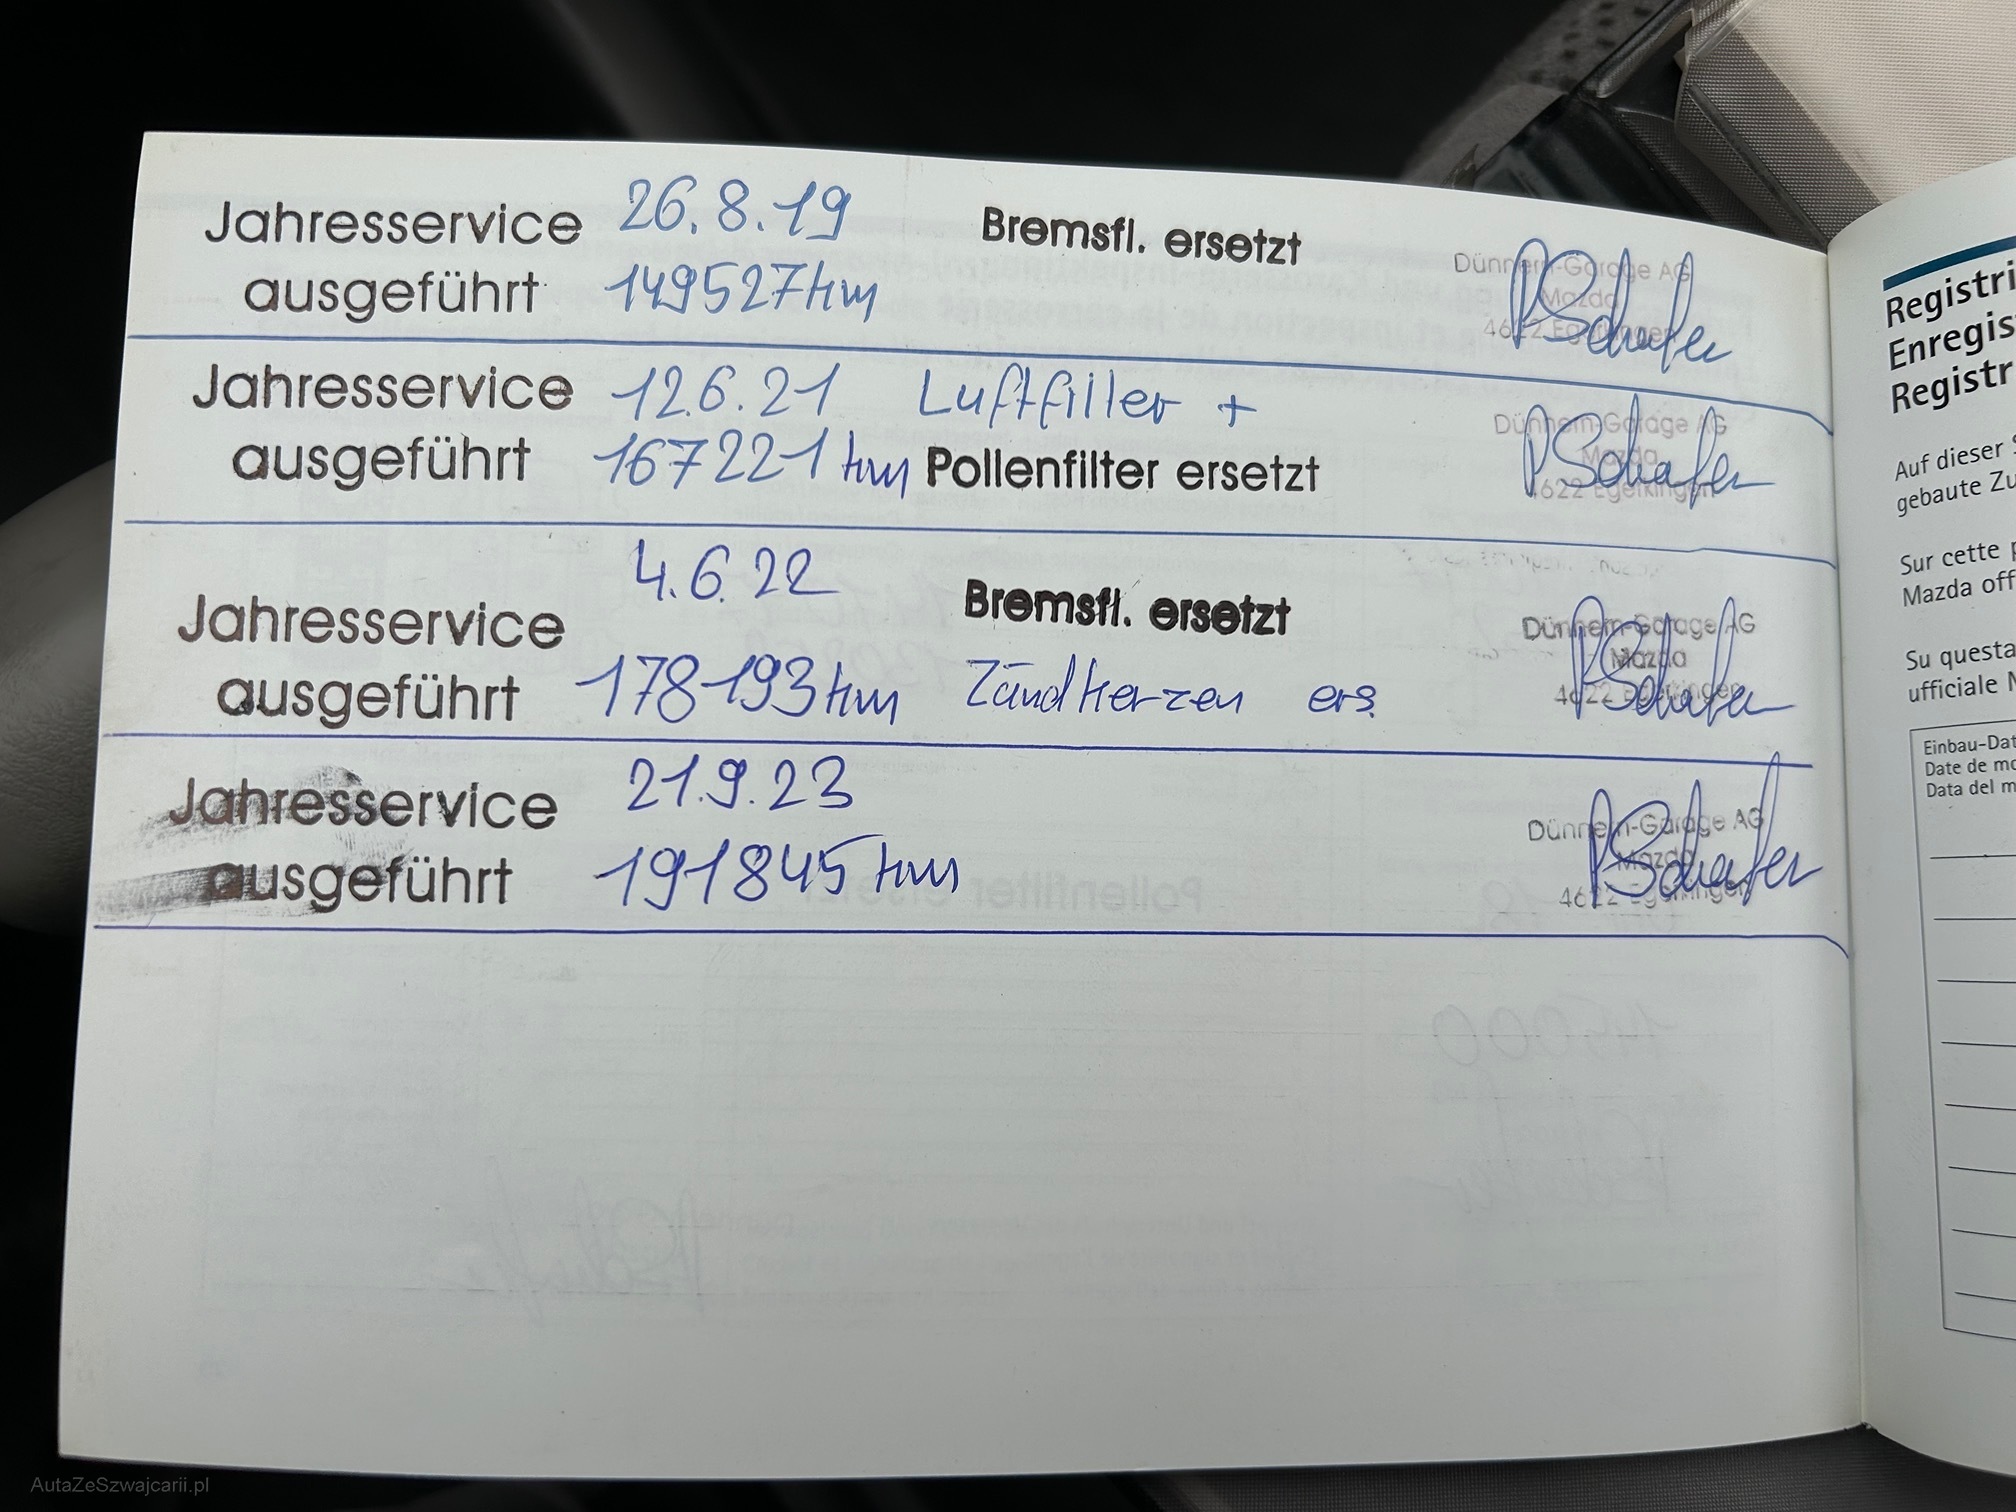 Jahresservice 26.8.19 Bremsfl. ersetzt
ausgeführt 149527 km
Dünnern-Garage AG
Mazda
4622 Egerkingen
PSchafer
Jahresservice 12.6.21 Luftfilter +
ausgeführt 167221 km Pollenfilter ersetzt
Dünnern-Garage AG
Mazda
4622 Egerkingen
PSchafer
4.6.22
Jahresservice Bremsfl. ersetzt
ausgeführt 178193 km Zündkerzen ers.
Dünnern-Garage AG
Mazda
4622 Egerkingen
PSchafer
Jahresservice 21.9.23
ausgeführt 191845 km
Dünnern-Garage AG
Mazda
4622 Egerkingen
PSchafer
Registri
Enregis
Registr
Auf dieser
gebaute Zu
Sur cette
Mazda off
Su questa
ufficiale
Einbau-Dat
Date de mo
Data del m
AutaZeSzwajcarii.pl